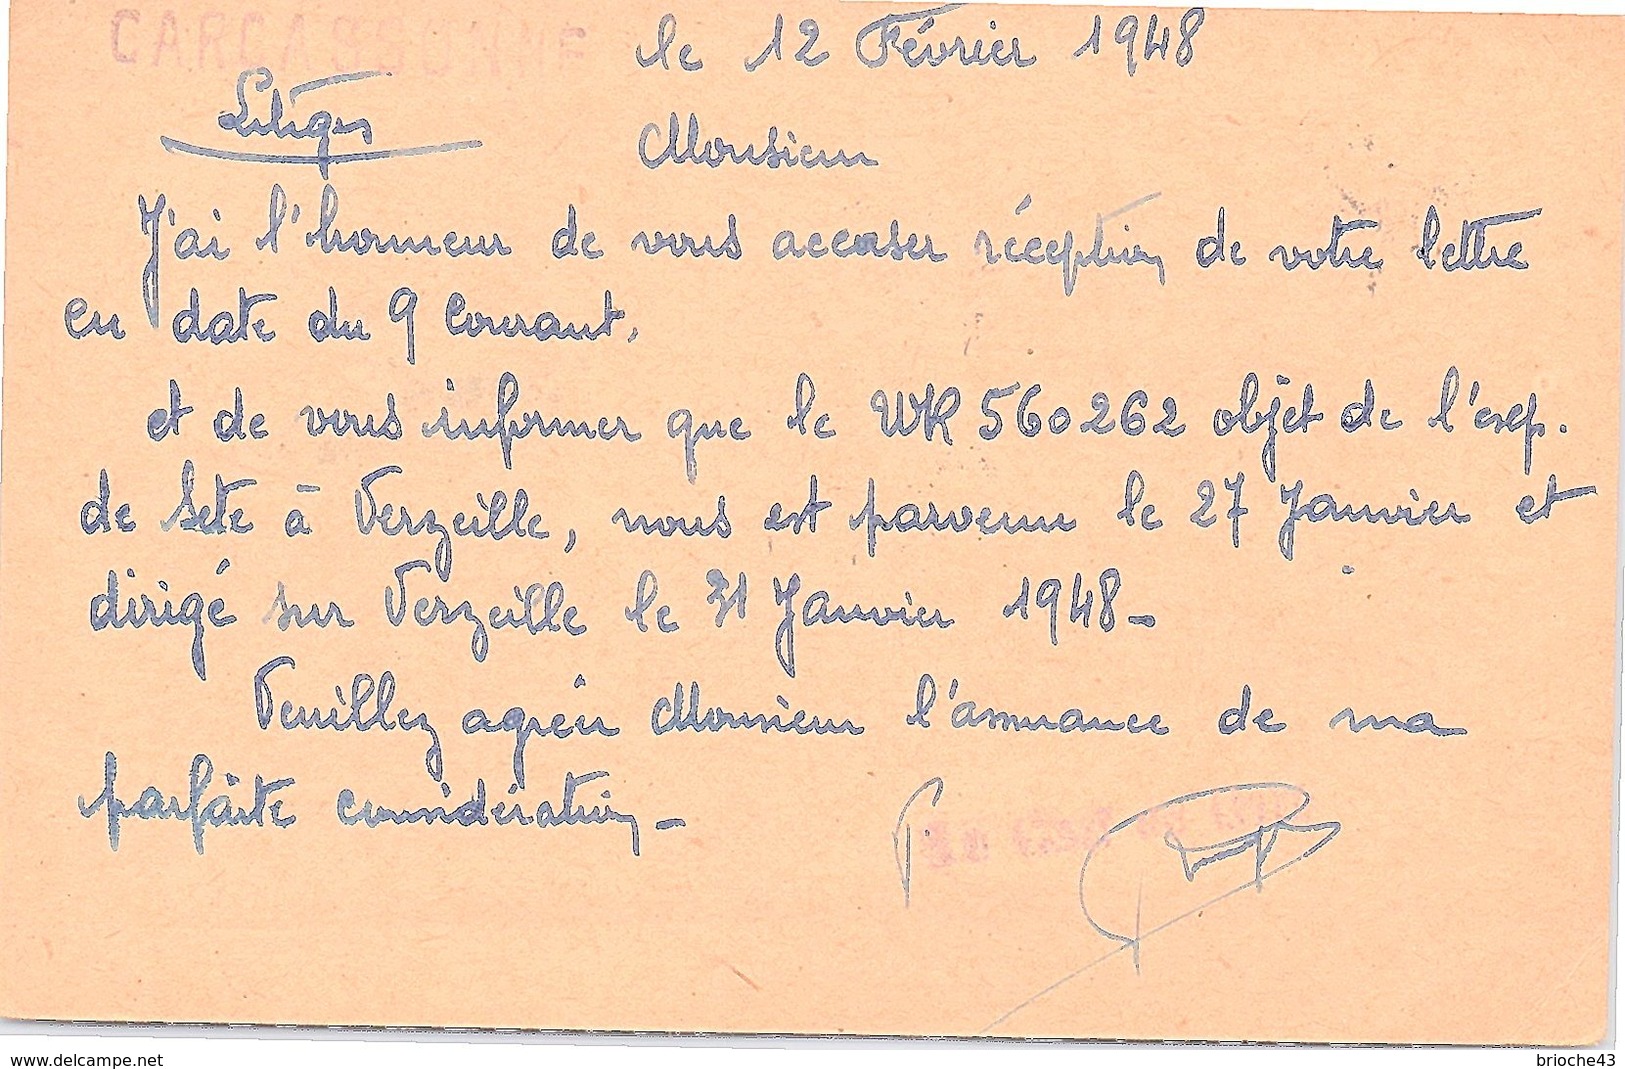 CARCASSONNE
le 12 Février 1948
Litiges
Monsieur
J'ai l'honneur de vous accuser réception de votre lettre
en date du 9 Courant.
et de vous informer que le WK 560262 objet de l'exp.
de Sete à Verzeille, nous est parvenu le 27 Janvier et
dirigé sur Verzeille le 31 Janvier 1948 -
Veuillez agréer Monsieur l'assurance de ma
parfaite considération -
P.
www.delcampe.net
brioche43